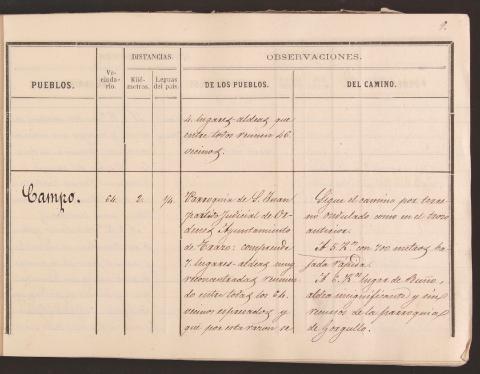 9.
DISTANCIAS.
OBSERVACIONES.
PUEBLOS.
Ve-
cinda-
rio.
Kiló-
metros.
Leguas
del país.
DE LOS PUEBLOS.
DEL CAMINO.
4 lugares aldeas que
entre todos reunen 46
vecinos.
Campo.
64.
2.
1/4.
Parroquia de S. Juan
partido judicial de Or-
denes Ayuntamiento
de Trazo: comprende
7 lugares-aldeas muy
reconcentradas reunien-
do entre todas los 64.
vecinos expresados y
que por esta razon se
Sigue el camino por terre-
no ondulado como en el trozo
anterior.
A 5. Km con 700 metros ba-
jada rápida.
A 6. Km lugar de Buño,
aldea insignificante y sin
recursos de la parroquia
de Gorgullo.